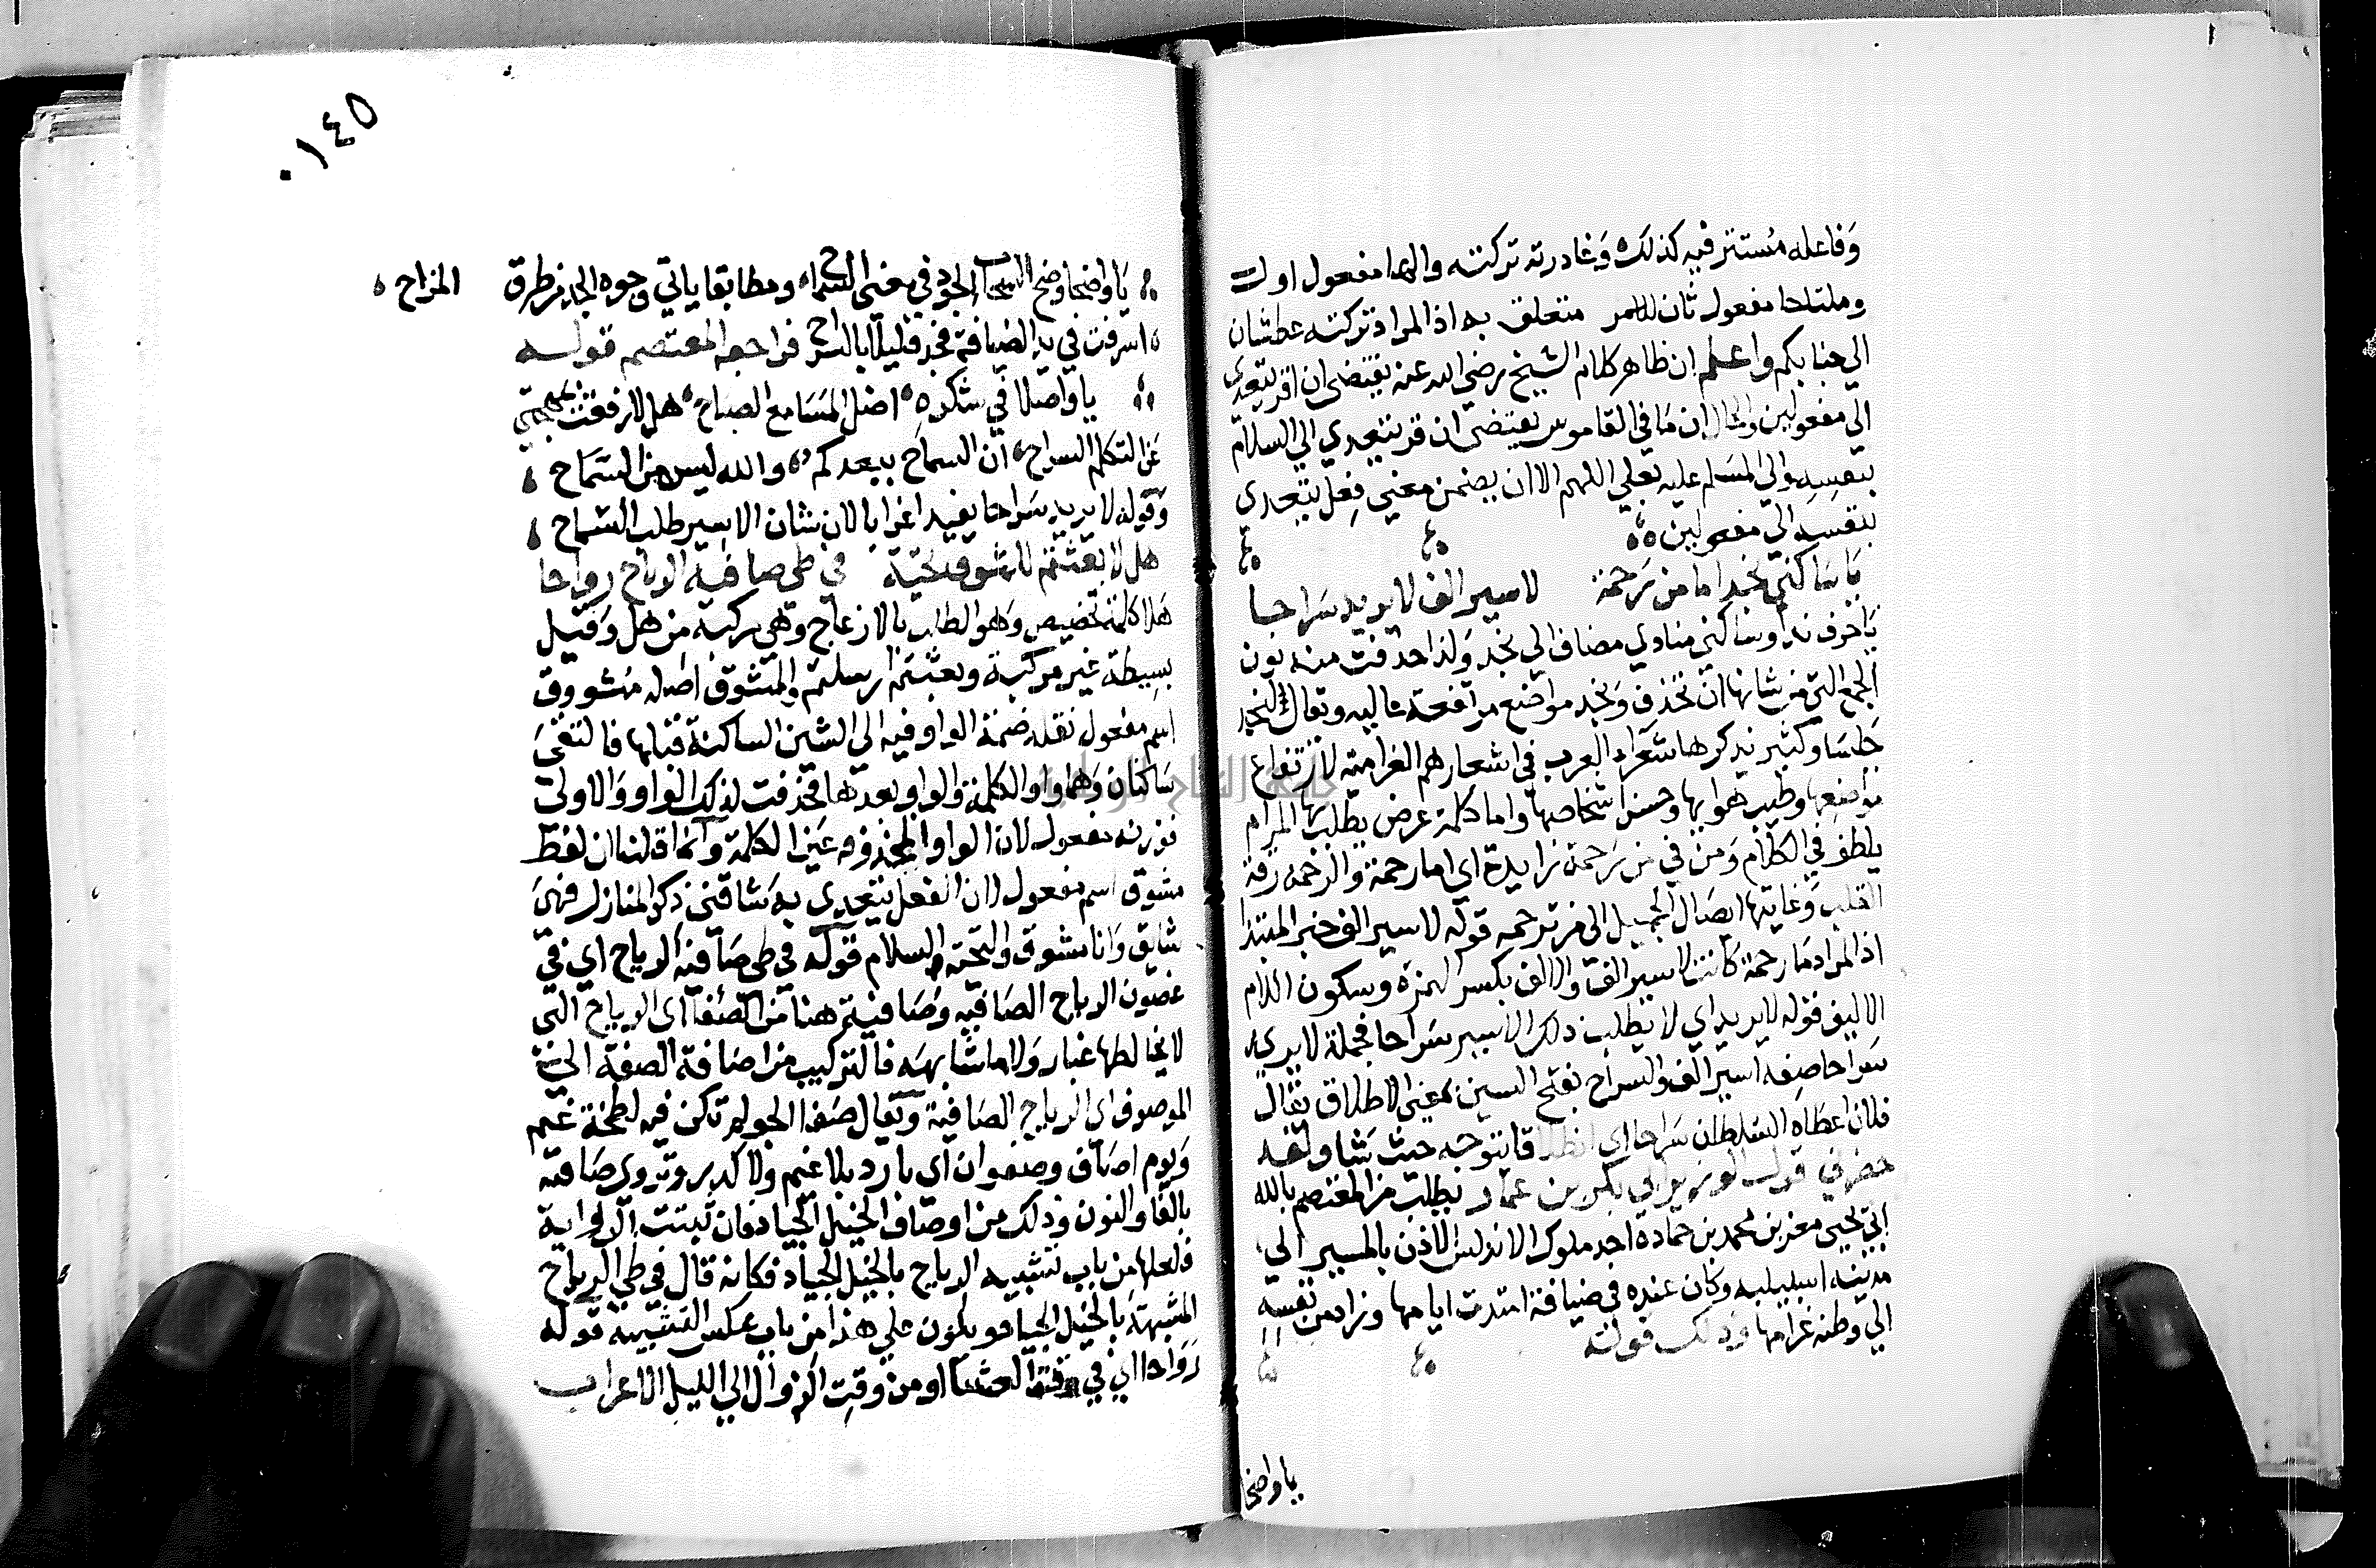 وفاعله مستتر فيه كذلك وغادرته تركته والها مفعول اول
وملتاحا مفعول ثان للامر متعلق به اذ المراد تركته عطشان
الي جنابكم واعلم ان ظاهر كلام الشيخ رضي الله عنه يقتضي ان اقر يتعدى
الى مفعولين والحال ان ما في القاموس يقتضي ان قر يتعدي الي السلام
بنفسه والي المسلم عليه بعلي اللهم الا ان يضمن معني فعل يتعدى
بنفسه الي مفعولين
يا ساكني نجد اما من رحمة لاسير الف لا يريد سراحا
يا حرف ندا وساكني منادي مضاف الي نجد ولذا حذفت منه نون
الجمع التي من شانها ان تحذف ونجد مواضع مرتفعة عاليه ويقال لنجد
جلسا وكثير يذكرها شعراء العرب في اشعارهم الغراميه لارتفاع
مواضعها وطيب هوايها وحسن اشخاصها واما كلمة عرض يطلب بها المرام
بلطف في الكلام ومن في من رحمة زايدة اي اما رحمة والرحمه رقة
القلب وغايتها ايصال الجميل الى من ترحمه قوله لاسير الف خبر المبتدا
اذ المراد ما رحمة كانت لاسير الف والالف بكسر الهمزه وسكون اللام
الاليف قوله لا يريد اي لا يطلب ذلك الاسير سراحا فجملة لا يريد
سراحا صفه اسير الف والسراح بفتح السين بمعني الاطلاق يقال
فلان اعطاه السلطان سراحا اي انطلاقا يتوجه حيث شا ولقد
حضرني قول الوزير ابي بكر بن عمار يطلب من المعتصم بالله
ابي يحيي معز بن محمد بن حماده احد ملوك الاندلس الاذن بالمسير الي
مدينه اسبيليه وكان عنده في ضيافة امتدت ايامها وزاد من نفسه
الي وطنه غرامها وذلك قوله
يا واضحا
١٤٥
يا واضحا وضح السحاب الجود في معنى السماح ومطابقا ياتي وجوه الجد من طرق المزاح
اسرفت في بر الضيافة فجد قليلا بالسراح فراجعه المعتصم قوله
يا واصلا في شكره اصل المسامع الصباح هل لا رفقت بمهجتي
عن التكلم السراح ان السماح ببعدكم والله ليس من السماح
وقوله لا يريد سراحا يفيد اغرابا لان شان الاسير طلب السماح
هل لا بعثتم للمشوق تحية في طي صافية الرياح رواحا
هلا كلمة تحضيض وهو الطلب بالازعاج وهي مركبه من هل وقيل
بسيطة غير مركبة وبعثتم ارسلتم والمشوق اصله مشووق
اسم مفعول نقله ضمة الواو فيه الي الشين الساكنة قبلها فالتقي
ساكنان وهما واو الكلمة والواو بعدها فحذفت لذلك الواو والاولي
فوزنه مفعول لان الواو المحذوفه عين الكلمة وانما قلنا ان لفظ
مشوق اسم مفعول لان الفعل يتعدى به شاقني ذكر المنازل فهي
شايق وانا مشوق والتحية السلام قوله في طي صافية الرياح اي في
غضون الرياح الصافيه وصافية هنا من الصفا اي الرياح التي
لا يخالطها غبار ولا ما شابهه فالتركيب من اضافة الصفة الي
الموصوف اي الرياح الصافية ويقال صفا الجو لم تكن فيه لطخة غيم
ويوم اصاف وصفوان اي بارد بلا غيم ولا كدر وتروى صافنه
بالفا والنون وذلك من اوصاف الخيل الجياد فان ثبتت الرواية
فلعلها من باب تشبيه الرياح بالخيل الجياد فكانه قال في طي الرياح
المشبهة بالخيل الجياد ويكون علي هذا من باب عكس التشبيه قوله
رواحا اي في وقت العشا او من وقت الزوال الي الليل الاعراب